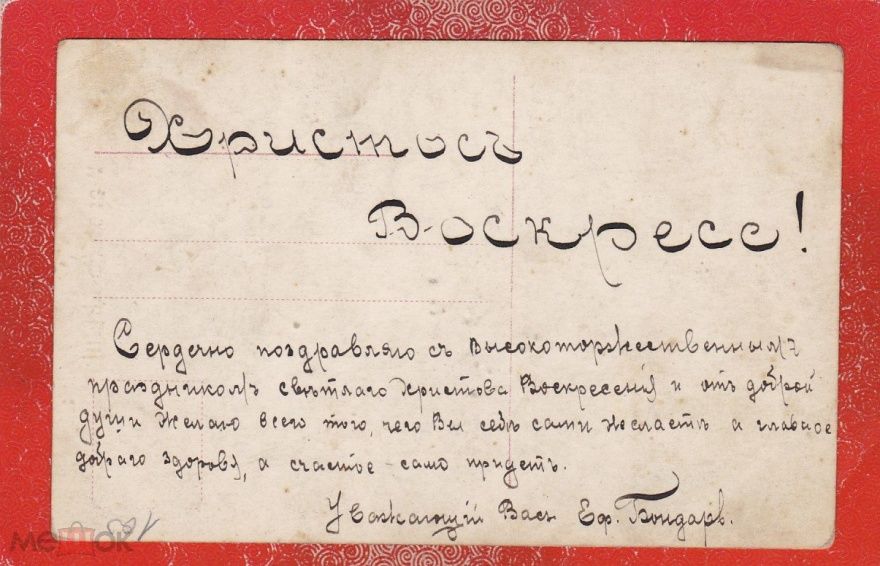 Христосъ
Воскресе!
Сердечно поздравляю съ высокоторжественнымъ
праздникомъ свѣтлаго Христова Воскресенія и отъ доброй
души желаю всего того, чего Вы себѣ сами желаетъ а главное
добраго здоровія, а счастье само придетъ.
Уважающій Васъ Еф. Бондарь.
мешок